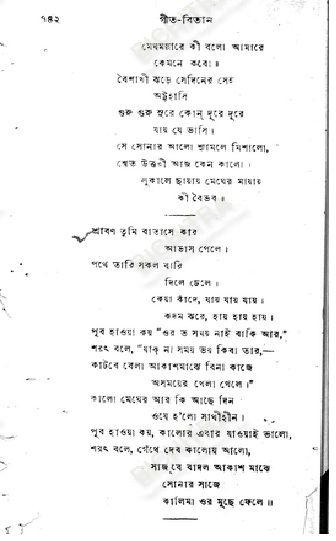 ৭৪২ গীত-বিতান
মেঘময়ারে কী বলো আমারে
কেমনে কবো॥
বৈশাখী ঝড়ে সেদিনের সেই
অট্টহাসি
গুরু গুরু সুরে কোন্ দূরে দূরে
যায় যে ভাসি।
সে সোনার আলো শ্যামলে মিশালো,
শ্বেত উত্তরী আজ কেন কালো।
লুকালে ছায়ায় মেঘের মায়ায়
কী বৈভব॥
শ্রাবণ তুমি বাতাসে কার
আভাস পেলে।
পথে তারি সকল বারি
দিলে ঢেলে।
কেয়া কাঁদে, যায় যায় যায়।
কদম ঝরে, হায় হায় হায়।
পূব হাওয়া কয় "ওর ত সময় নাই বাকি আর,"
শরৎ বলে, "যাক্ না সময় ভয় কিবা তার,—
কাটবে বেলা আকাশমাঝে বিনা কাজে
অসময়ের খেলা খেলে।"
কালো মেঘের আর কি আছে দিন
ওযে হ'লো সাথীহীন।
পূব হাওয়া কয়, কালোর এবার যাওয়াই ভালো,
শরৎ বলে, গেঁথে দেব কালোয় আলো,
সাজ্‌বে বাদল আকাশ মাঝে
সোনার সাজে
কালিমা ওর মুছে ফেলে॥